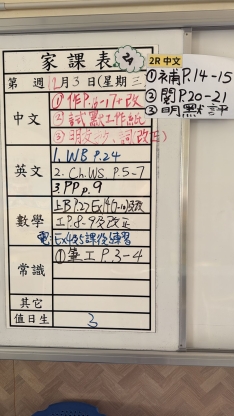 家課表
2R中文
第 週 12月3日(星期三)
①補P.14-15
②閱P.20-21
③明默評
中文
①作P.
改
②試默工作紙
③明交
詞改正)
英文
1. WB P.24
2. Ch.WS P.5-7
3. PP p.9
數學
上B P.27 Ex14(7-10)及改
工P.8-9及改正
電:Ex4
課後
練習
常識
①筆工P.3-4
其它
值日生
3